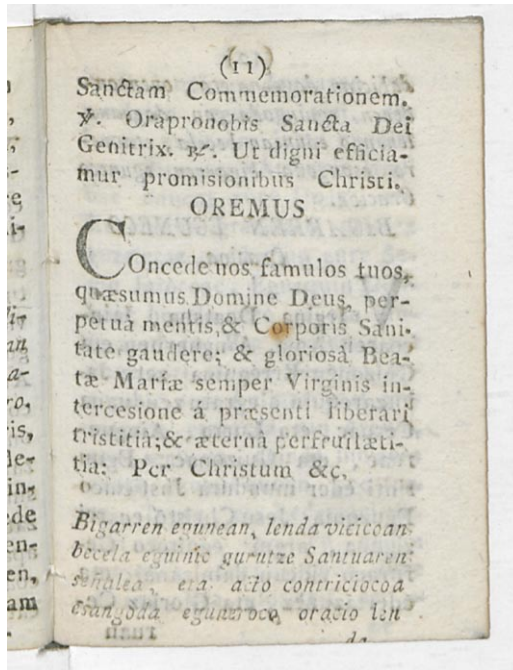 (11)
Sanctam Commemorationem.
℣. Orapronobis Sancta Dei
Genitrix. ℟. Ut digni efficia-
mur promisionibus Christi.
OREMUS
COncede nos famulos tuos,
quæsumus Domine Deus, per-
petuà mentis, & Corporis Sani-
tate gaudere; & gloriosà Bea-
tæ Mariæ semper Virginis in-
tercesione á præsenti liberari
tristitia; & æternà perfruilæti-
tia: Per Christum &c,
Bigarren egunean, lenda vicicoan
becela eguinic gurutze Santuaren
señalea, eta acto contriciocoa
esangoda eguneroco oracio len
da